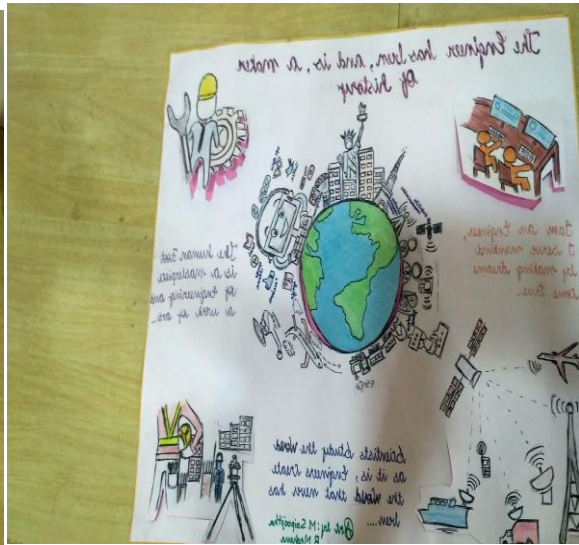 The Engineer has been, and is, a maker
of history
I am an Engineer,
I serve mankind
by making dreams
come true..
The human Foot
is a masterpiece
of Engineering and
a work of art...
Scientists study the world
as it is, Engineers create
the world that never has
been....
by: M. Saipoojitha